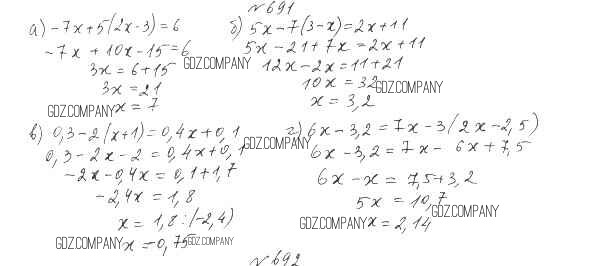 № 691
а) -7x+5(2x-3)=6
-7x+10x-15=6
3x=6+15
GDZ.COMPANY
3x=21
GDZ.COMPANY
x=7
б) 5x-7(3-x)=2x+11
5x-21+7x=2x+11
12x-2x=11+21
10x=32
GDZ.COMPANY
x=3,2
в) 0,3-2(x+1)=0,4x+0,1
GDZ.COMPANY
0,3-2x-2=0,4x+0,1
-2x-0,4x=0,1+1,7
-2,4x=1,8
x=1,8:(-2,4)
GDZ.COMPANY
x=-0,75
GDZ.COMPANY
г) 6x-3,2=7x-3(2x-2,5)
6x-3,2=7x-6x+7,5
6x-x=7,5+3,2
5x=10,7
GDZ.COMPANY
GDZ.COMPANY
x=2,14
№ 692